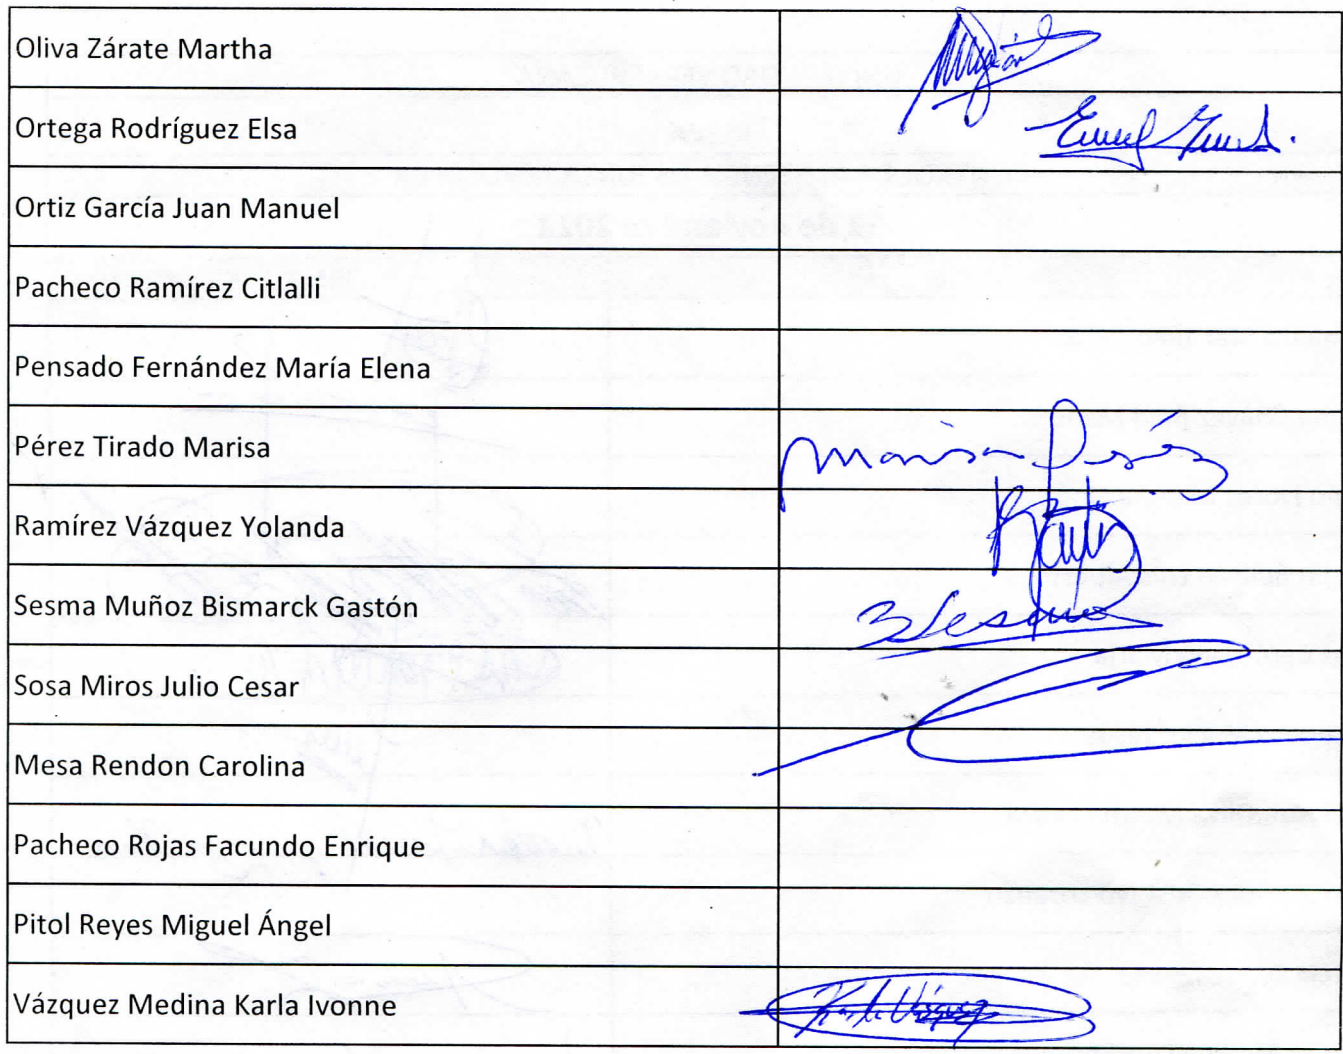 Oliva Zárate Martha
Ortega Rodríguez Elsa
Ortiz García Juan Manuel
Pacheco Ramírez Citlalli
Pensado Fernández María Elena
Pérez Tirado Marisa
Marisa Pérez
Ramírez Vázquez Yolanda
Sesma Muñoz Bismarck Gastón
Sosa Miros Julio Cesar
Mesa Rendon Carolina
Pacheco Rojas Facundo Enrique
Pitol Reyes Miguel Ángel
Vázquez Medina Karla Ivonne
Karla Vázquez